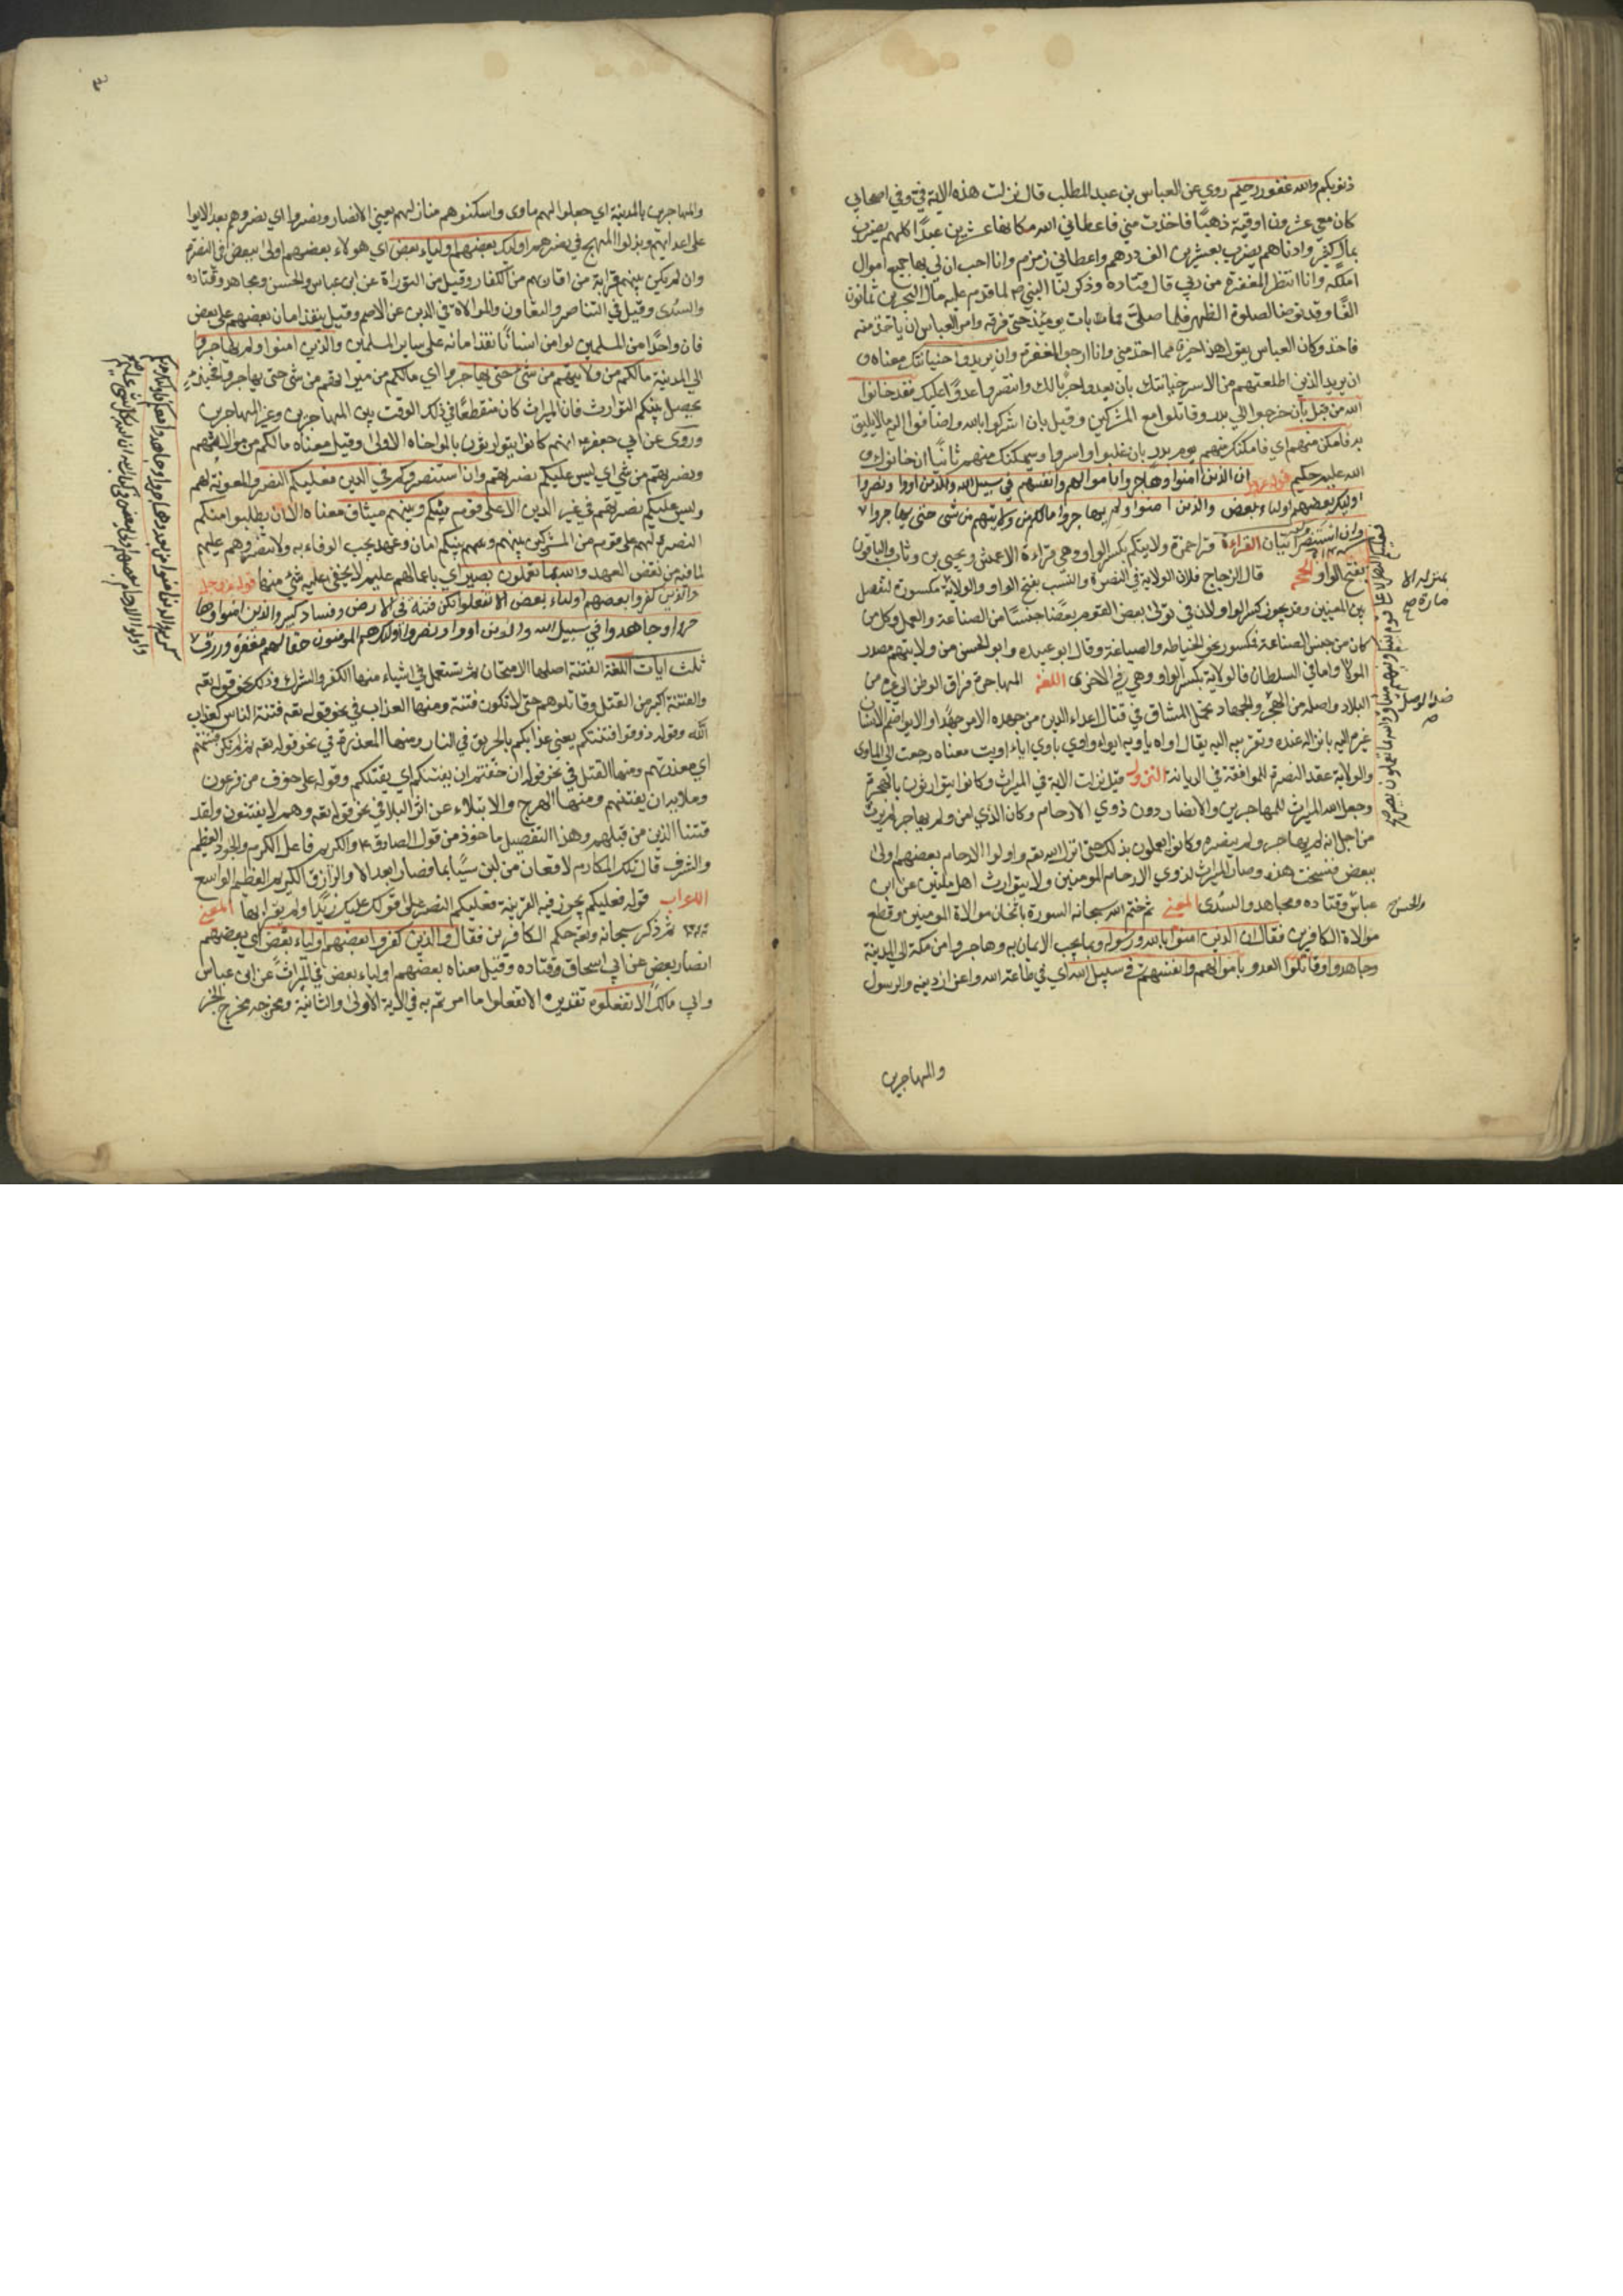 ذنوبكم والله غفور رحيم روي عن العباس بن عبد المطلب قال نزلت هذه الاية فيّ وفي اصحابي
كان معي عشرون اوقية ذهبًا فاخذت مني فاعطاني الله مكانها عشرين عبدًا كلهم يضرب
بمال كثير وادناهم يضرب بعشرين الف درهم واعطاني زمزم وانا احب ان لي بها جميع اموال
اهل مكة وانا انتظر المغفرة من ربي قال قتاده وذكر لنا ان النبي ص لما قدم عليه مال البحرين ثمانون
الفًا وقد توضا لصلوة الظهر فما صلى يومئذ حتى فرقه وامر العباس ان ياخذ منه
فاخذ وكان العباس يقول هذا خير مما اخذ مني وانا ارجو المغفرة وان يريدوا خيانتك معناه و
ان يريد الذين اطلقتهم من الاسر خيانتك بان يعدوا حربًا لك وانتصروا عدوًا عليك فقد خانوا
الله من قبل بان خرجوا الي بدر وقاتلوا مع المشركين وقيل بان اشركوا بالله واضافوا اليه ما لا يليق
به فامكن منهم اي فامكنك منهم يوم بدر بان غلبوا واسروا وسيمكنك منهم ثانيًا ان خانوك و
الله عليم حكيم قوله عز وجل ان الذين امنوا وهاجروا وجاهدوا باموالهم وانفسهم في سبيل الله والذين اووا ونصروا
اوليك بعضهم اولياء بعض والذين امنوا ولم يهاجروا مالكم من ولايتهم من شى حتى يهاجروا
وان استنصروكم ايتان القراءة قرا حمزة ولايتكم بكسر الواو وهي قراءة الاعمش ويحيى بن وثاب والباقون
بفتح الواو الحجة قال الزجاج فلان الولاية في النصرة والنسب بفتح الواو والولاية مكسورة لتفصل
بين المعنيين وقد يجوز كسر الواو لان في تولى بعض القوم بعضًا جنسًا من الصناعة والعمل وكل من
كان من جنس الصناعة فمكسور نحو الخياطه والصياغة وقال ابو عبيده وابو الحسن من ولايتهم مصدر
المولا واما في السلطان فالولاية بكسر الواو وهي في الاخرى اللغة المهاجرة فراق الوطن الي غيره من
البلاد واصله من الهجر والجهاد تحمل المشاق في قتال اعداء الدين من جهده الامر جهدًا والايواء ضم الانسان
غيره اليه بانزاله عنده وتقريبه اليه يقال اواه ياويه ايواء واوي ياوي اياء اويت معناه رجعت الى الماوى
والولاية عقد النصرة للموافقة في الديانة النزول قيل نزلت الاية في الميراث وكانوا يتوارثون بالهجرة
وجعل الله الميراث للمهاجرين والانصار دون ذوي الارحام وكان الذي امن ولم يهاجر لم يرث
من اجل انه لم يهاجر ولم ينصر وكانوا يعملون بذلك حتى انزل الله تعه واولوا الارحام بعضهم اولى
ببعض فنسخت هذه وصار الميراث لذوي الارحام المومنين ولا يتوارث اهل ملتين عن ابن
عباس وقتاده ومجاهد والسدى المعني ثم ختم الله سبحانه السورة بايجاب موالاة المومنين وقطع
موالاة الكافرين فقال ان الذين امنوا بالله ورسوله وبما يجب الايمان به وهاجروا من مكة الى المدينة
وجاهدوا وقاتلوا العدو باموالهم وانفسهم في سبيل الله اي في طاعة الله واعزاز دينه والرسول
والمهاجرين
بمنزلة الا
مارة صح
ضد الوصل
والحسن
فعليكم النصر الا على قوم بينكم وبينهم ميثاق والله بما تعملون بصير
والمهاجرين بالمدينة اي جعلوا لهم ماوى واسكنوهم منازلهم يعني الانصار ونصروا اي نصروهم بعد الايوا
على اعدايهم وبذلوا المهج في نصرهم اوليك بعضهم اولياء بعض اي هولاء بعضهم اولى ببعض في النصرة
وان لم يكن بينهم قرابة من اقاربهم من الكفار وقيل من التوراة عن ابن عباس والحسن ومجاهد وقتاده
والسدى وقيل في التناصر والتعاون والموالاة في الدين عن الاصم وقيل ينفذ امان بعضهم على بعض
فان واحدًا من المسلمين لو امن انسانًا نفذ امانه على ساير المسلمين والذين امنوا ولم يهاجروا
الى المدينة مالكم من ولايتهم من شى حتى يهاجروا اي مالكم من ميراثهم من شى حتى يهاجروا فحينئذ
يحصل بينكم التوارث فان الميراث كان منقطعًا في ذلك الوقت بين المهاجرين وغير المهاجرين
وروى عن ابي جعفر انهم كانوا يتوارثون بالمواخاه الاولى وقيل معناه مالكم من موالاتهم
ونصرتهم من شي اي ليس عليكم نصرتهم وان استنصروكم في الدين فعليكم النصر والمعونة لهم
وليس عليكم نصرتهم في غير الدين الا على قوم بينكم وبينهم ميثاق معناه الا ان يطلبوا منكم
النصرة لهم على قوم من المشركين بينهم وبينكم امان وعهد يجب الوفاء به ولا تنصروهم عليهم
لما فيه من نقض العهد والله بما تعملون بصير اي باعمالهم عليم لا يخفى عليه شى منها قوله عز وجل
والذين كفروا بعضهم اولياء بعض الا تفعلوه تكن فتنة في الارض وفساد كبير والذين امنوا وها
جروا وجاهدوا في سبيل الله والذين اووا ونصروا اوليك هم المومنون حقا لهم مغفرة ورزق
ثلث ايات اللغة الفتنة اصلها الامتحان ثم تستعمل في اشياء منها الكفر والشرك وذلك نحو قوله تعه
والفتنة اكبر من القتل وقاتلوهم حتى لا تكون فتنة ومنها العذاب في نحو قوله تعه فتنة الناس كعذاب
الله وقوله ذوقوا فتنتكم يعني عذابكم بالحريق في النار ومنها المعذرة في نحو قوله تعه ثم لم تكن فتنتهم
اي معذرتهم ومنها القتل في نحو قوله ان خفتم ان يفتنكم اي يقتلكم وقوله على خوف من فرعون
وملايه ان يفتنهم ومنها الهرج والابتلاء عن اثر البلا في نحو قوله تعه وهم لا يفتنون ولقد
فتنا الذين من قبلهم وهذا التفصيل ماخوذ من قول الصادق ع والكريم فاعل الكرم والجود العظيم
والشرف قال تلك المكارم لا قعبان من لبن شيبا بماء فصارا بعد ابوالا والرازق الكريم العظيم الواسع
الاعراب قوله فعليكم يجوز فيه القرينة فعليكم النصر على قولك عليك زيدًا ولم يقرا بها المعني
ثم ذكر سبحانه وتعه حكم الكافرين فقال والذين كفروا بعضهم اولياء بعض اي بعضهم
انصار بعض عن ابي اسحاق وقتاده وقيل معناه بعضهم اولياء بعض في الميراث عن ابن عباس
وابي مالك الا تفعلوه تقديره الا تفعلوا ما امرتم به في الاية الاولى والثانية ومخرجه مخرج الخبر
كريم والذين امنوا من بعد وهاجروا وجاهدوا معكم فاوليك منكم
واولوا الارحام بعضهم اولى ببعض في كتاب الله ان الله بكل شى عليم